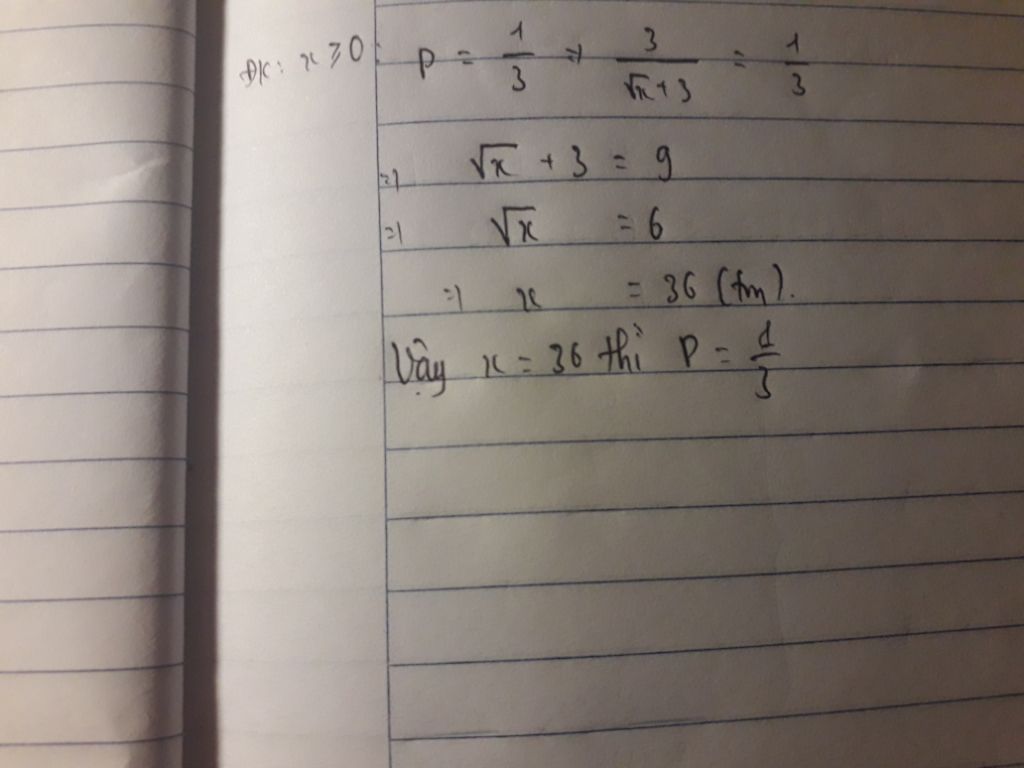 ĐK: x ≥ 0: P = 1/3 => 3/(√x + 3) = 1/3
=> √x + 3 = 9
=> √x = 6
=> x = 36 (tm).
Vậy x = 36 thì P = 1/3